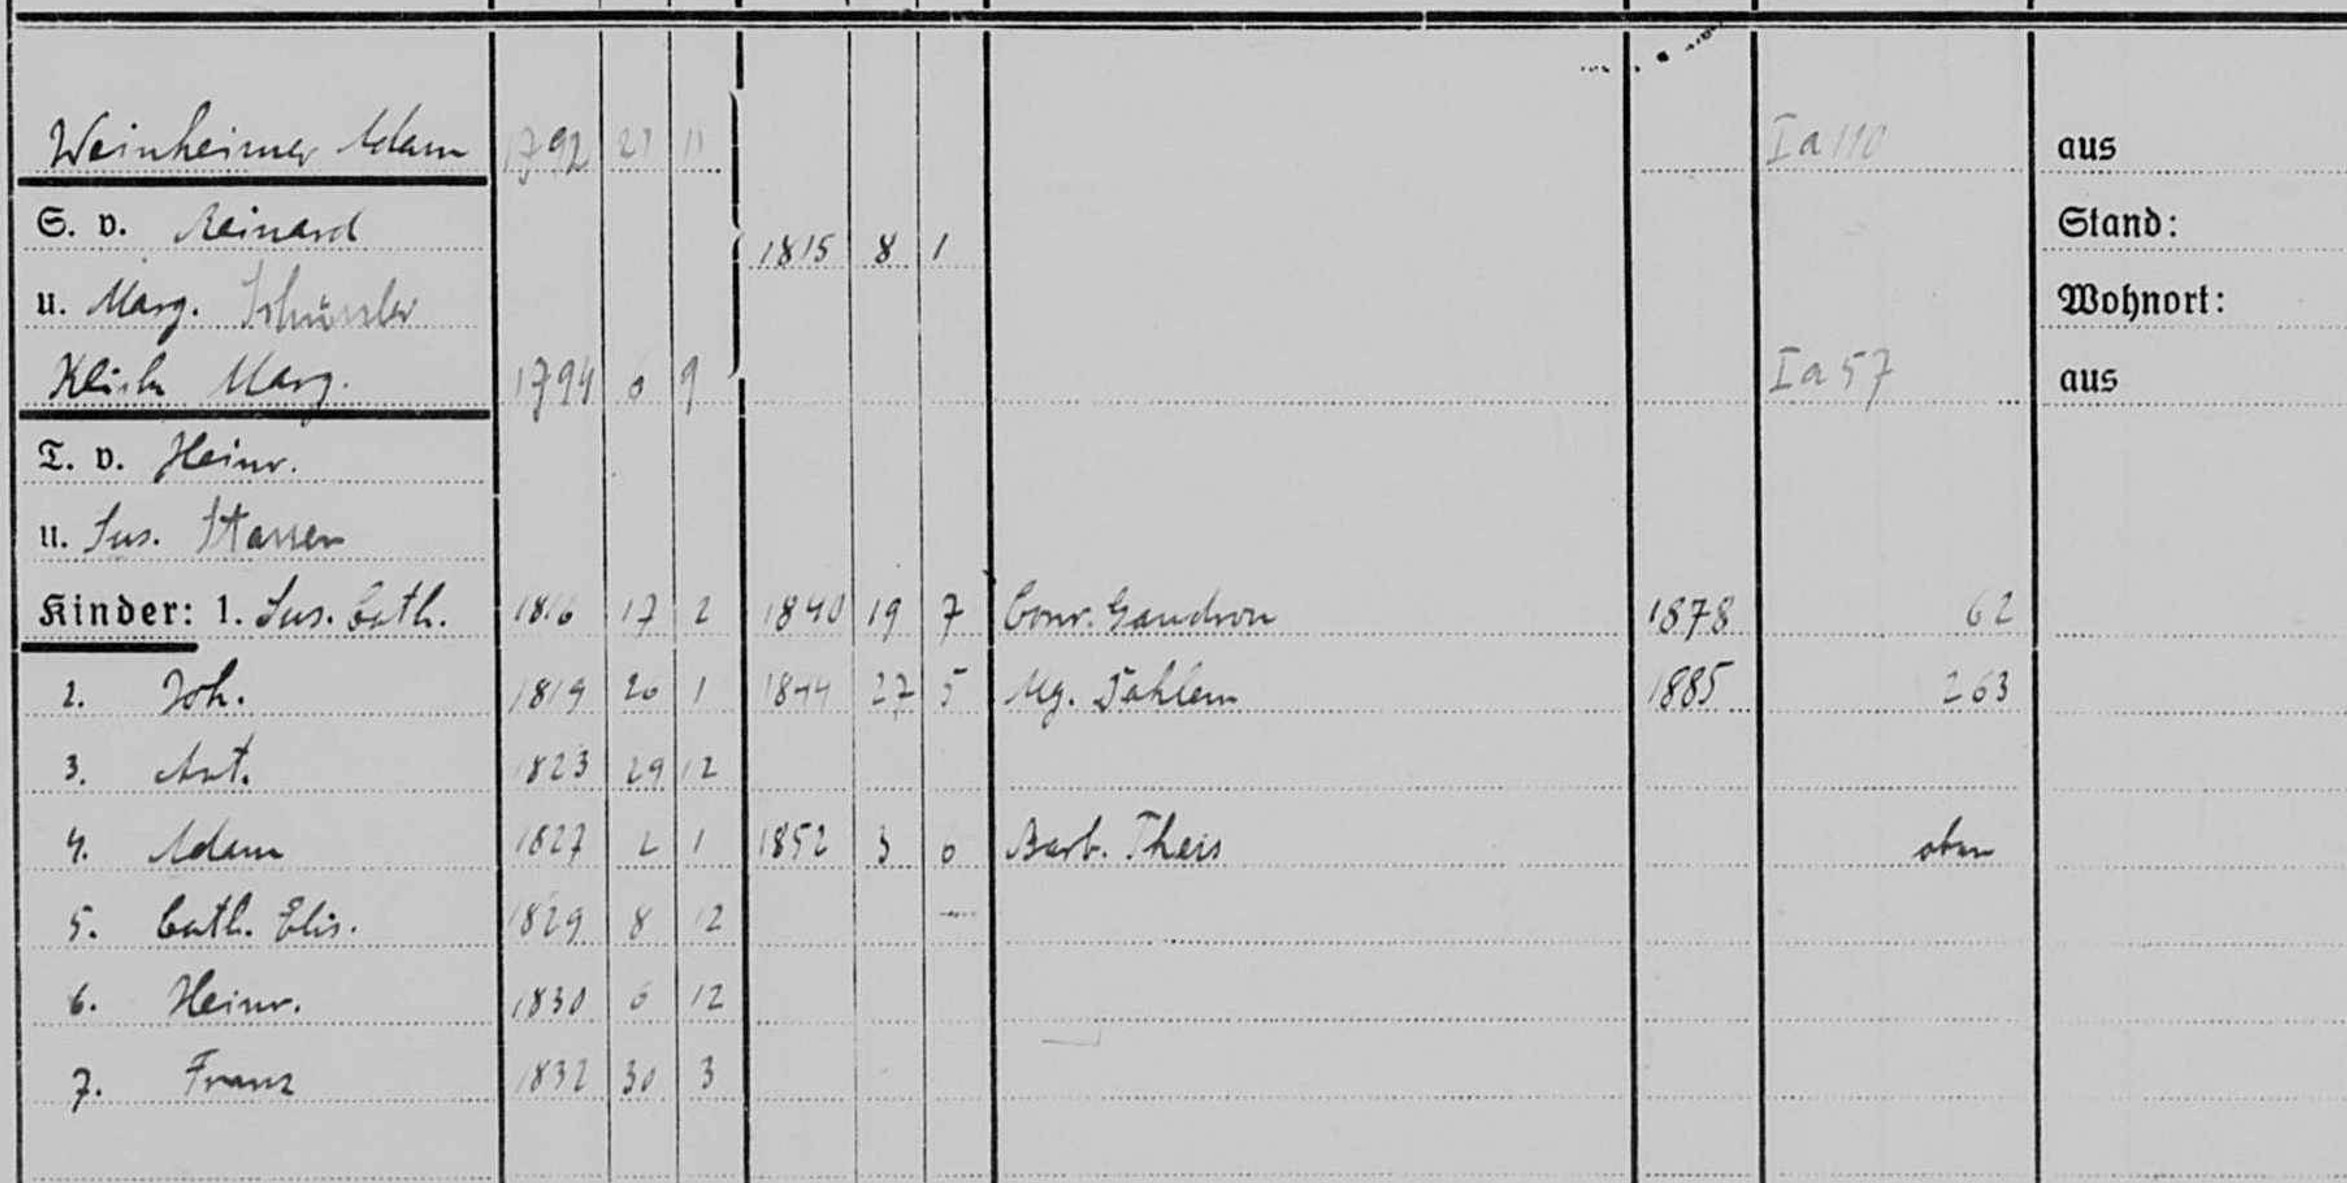 Weinheimer Adam 1792 21 11 Ia 110 aus
S. v. Reinard Stand:
1815 8 1
u. Marg. Schüssler Wohnort:
Marg. 1794 6 9 Ia 57 aus
T. v. Heinr.
u. Sus. Stassen
Kinder: 1. Sus. Cath. 1816 17 2 1840 19 7 Conr. Gaudron 1878 62
2. Joh. 1819 20 1 1844 27 5 Mg. Dahlem 1885 263
3. Ant. 1823 29 12
4. Adam 1827 2 1 1852 3 6 Barb. Theis oben
5. Cath. Elis. 1829 8 12
6. Heinr. 1830 6 12
7. Franz 1832 30 3